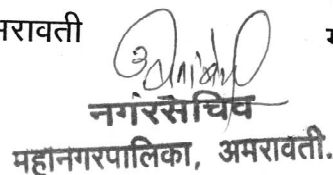 मरावती
नगरसचिव
महानगरपालिका, अमरावती.